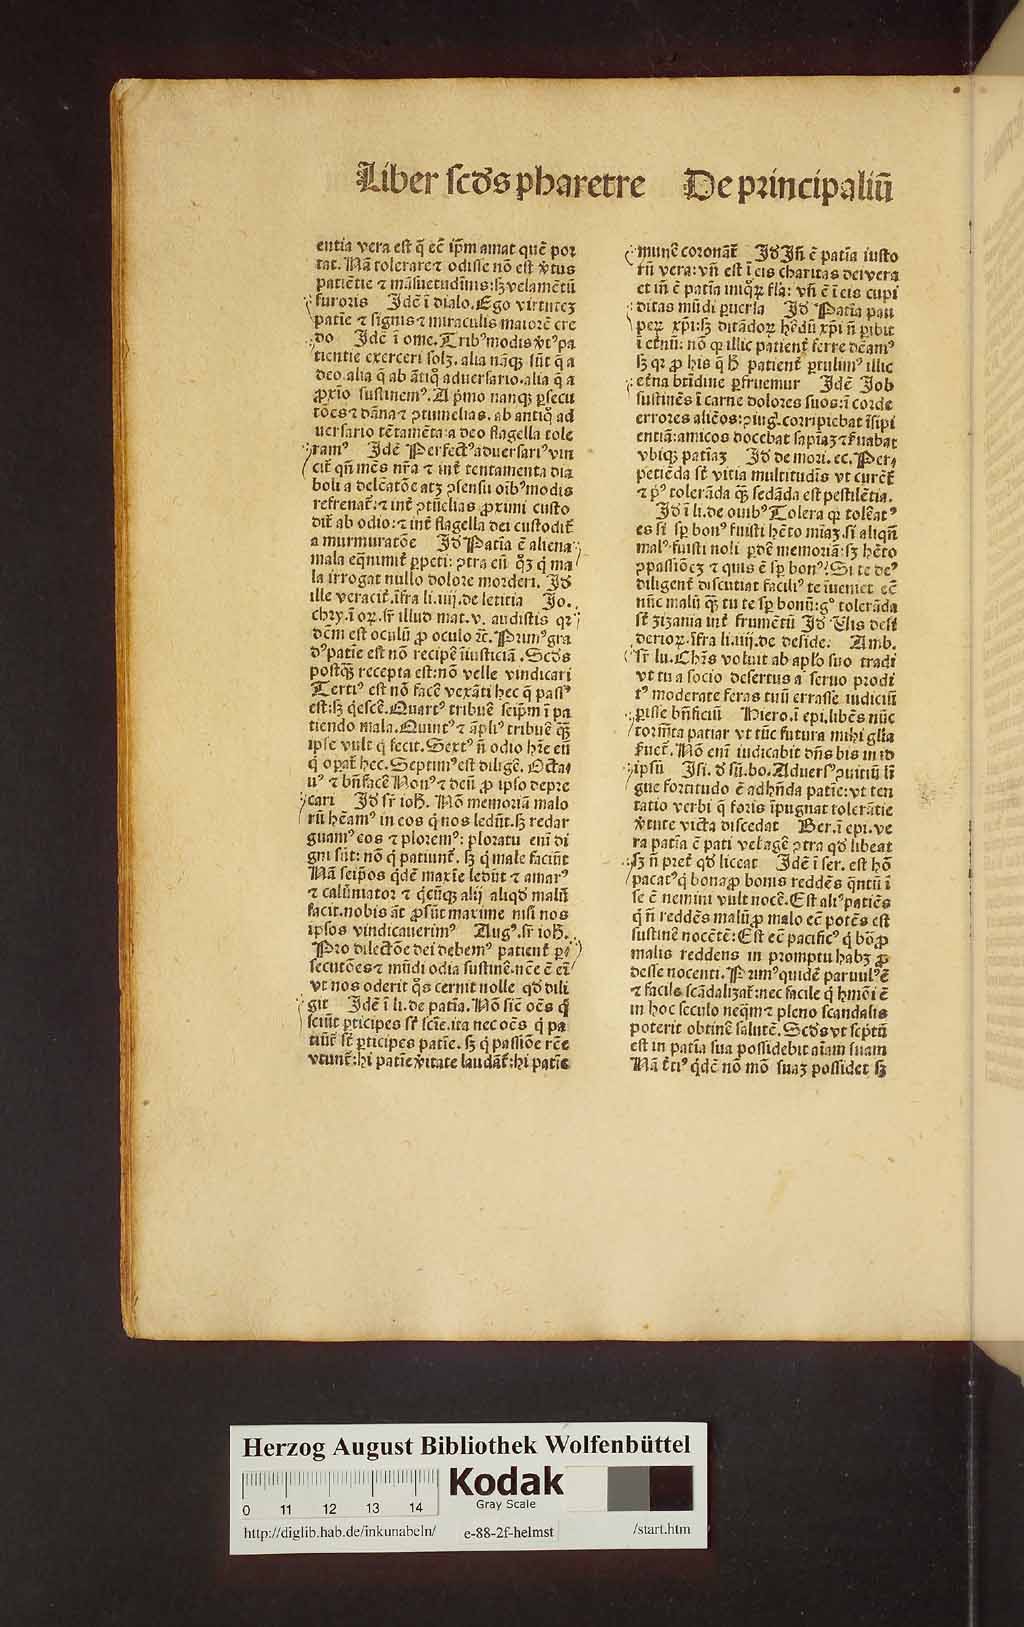 Liber scd̄s pharetre De principaliū
entia vera est q̄ eē ip̄m amat quē por
tat. Nā tolerare ⁊ odisse nō est v̄tus
patiētie ⁊ māsuetudīnis: sꝫ velamētū
furoris Idē ī dialo. Ego virtutez
patīe ⁊ signis ⁊ miraculis maiorē cre
do Idē ī ome. Tribꝰ modis v̄tꝰ pa
tientie exerceri solꝫ. alia nāqꝫ sūt q̄ a
deo. alia q̄ ab ātiq̊ aduersario. alia q̄ a
ꝓxīo sustinemꝰ. A p̄mo nanqꝫ ꝑsecu
tōes ⁊ dāna ⁊ ꝯtumelias. ab antiq̊ ad
uersario tētamēta: a deo flagella tole
ramꝰ Idē Perfectꝰ aduersariꝰ vin
cit̄ qn̄ mēs nr̄a ⁊ int̄ tentamenta dia
boli a delectatōe atqꝫ ꝯsensu oībꝰ modis
refrenat̄: ⁊ int̄ ꝯtūelias ꝓximi custo
dit̄ ab odio: ⁊ int̄ flagella dei custodit̄
a murmuratōe Id̄ Patīa ē aliena
mala eq̄nimit̄ ꝑpeti: ꝯtra eū q̊ꝫ q̄ ma
la irrogat nullo dolore morderi. Id̄
ille veracit̄. īfra li. iiij. de letitia Jo.
chry. ī oꝑ. sr̄ illud mat. v. audistis qꝛ
dc̄m est oculū ꝓ oculo ⁊c̄. Primꝰ gra
dꝰ patīe est nō recipē īiusticiā. Scd̄s
postq̄ꝫ recepta est: nō velle vindicari
Tertiꝰ est nō facē vexāti hec q̄ passꝰ
est: sꝫ q̄escē. Quartꝰ tribuē seip̄m ī pa
tiendo mala. Quintꝰ ⁊ āpliꝰ tribuē q̄ꝫ
ipse vult q̄ fecit. Sextꝰ n̄ odio hr̄e eū
q̄ opat̄ hec. Septimꝰ est diligē. Octa
uꝰ ⁊ bn̄facē Nonꝰ ⁊ deū ꝓ ipso depre
cari Id̄ sr̄ ioh̄. Nō memoriā malo
rū hēamꝰ in eos q̄ nos ledūt. sꝫ redar
guamꝰ eos ⁊ ploremꝰ: ploratu enī di
gni sūt: nō q̄ patiunt̄. sꝫ q̄ male faciūt
Nā seip̄os q̄dē maxīe ledūt ⁊ amarꝰ
⁊ calūniatoꝛ ⁊ q̄cūqꝫ alij aliqd̄ malū
facit. nobis āt ꝓsūt maxime nisi nos
ipsos vindicauerimꝰ Augꝰ. sr̄ ioh̄.
Pro dilectōe dei debemꝰ patient̄ ꝑ
secutōes ⁊ mūdi odia sustinē. nc̄e ē eī
vt nos oderit q̊s cernit nolle qd̄ dili
git Idē ī li. de patīa. Nō sic̄ oēs q̄
sciūt ꝑticipes st̄ scīe. ita nec oēs q̄ pa
tiūt̄ st̄ ꝑticipes patīe. sꝫ q̄ passiōe rc̄e
vtunt̄: hi patīe v̄itate laudāt̄: hi patīe
munē coronāt̄ Id̄ In̄ ē patīa iusto
rū vera: vn̄ est ī eis charitas dei vera
et in̄ ē patīa iniqꝝ fl̄a: vn̄ ē ī eis cupi
ditas mūdi ꝑuersa Id̄ Patīa pau
peꝝ xp̄i: sꝫ ditādoꝝ hēdū xp̄i n̄ ꝑibit
ī et̄nū: nō qꝛ illic patient̄ ferre dēamꝰ
sꝫ qꝛ ꝓ his q̄ h̄ patient̄ ꝑtulimꝰ illic
et̄na btīdine ꝑfruemur Idē Job
sustinēs ī carne dolores suos: ī corde
errores aliēos: ꝯiuḡ. corripiebat īsipi
entiā: amicos docebat sapīaꝫ ⁊ s̄uabat
vbiqꝫ patīaꝫ Id̄ de mori. ec. Per
petiēda st̄ vitia multitudīs vt curēt̄
⁊ pꝰ tolerāda q̄ꝫ sedāda est pestilētia.
Id̄ ī li. de ouibꝰ Tolera qꝛ tolerat̄ꝰ
es si sꝑ bonꝰ fuisti hēto mīaꝫ. si aliqn̄
malꝰ fuisti noli ꝑdē memoriā: sꝫ hēto
ꝯpassiōeꝫ ⁊ quis ē sꝑ bonꝰ? Si te deꝰ
diligent̄ discutiat faciliꝰ te īueniet eē
nūc malū q̄ꝫ tu te sꝑ bonū: gͦ tolerāda
st̄ zizania int̄ frumētū Id̄ Vis desi
derioꝝ. īfra li. iiij. de deside. Amb.
sr̄ lu. Chr̄s voluit ab apl̄o suo tradi
vt tu a socio desertus a seruo prodi
tꝰ moderate feras tuū errasse iudiciū
ꝑisse bn̄ficiū Hiero. ī epi. libēs nūc
torm̄ta patiar vt tūc futura mihi gl̄ia
s̄uet̄. Nō enī iudicabit dn̄s bis in id
ipsū Isi. d̄ sū. bo. Aduersꝰ ꝯuitiū lī
gue fortitudo ē adhn̄da patīe: vt ten
tatio verbi q̄ foris īpugnat tolerātie
v̄tute victa discedat Ber. ī epi. ve
ra patīa ē pati vel agē ꝯtra qd̄ libeat
sꝫ n̄ pret̄ qd̄ liceat Idē ī ser. est hō
pacatꝰ q̄ bona ꝓ bonis reddēs q̄ntū ī
se ē nemini vult nocē. Est aliꝰ patiēs
q̄ n̄ reddēs malū ꝓ malo eē potēs est
sustinē nocētē: Est eē pacificꝰ q̄ bō ꝓ
malis reddens in promptu habꝫ ꝓ
desse nocenti. Primꝰ quidē paruulꝰ ē
⁊ facile scādalizat̄: nec facile q̄ hmōi ē
in hoc seculo neq̄m ⁊ pleno scandalis
poterit obtinē salutē. Scd̄s vt sc̄ptū
est in patīa sua possidebit aīam suam
Nā t̄tiꝰ q̄dē nō mō suaꝫ possidet sꝫ
Herzog August Bibliothek Wolfenbüttel
Kodak
Gray Scale
0 11 12 13 14
http://diglib.hab.de/inkunabeln/ e-88-2f-helmst /start.htm